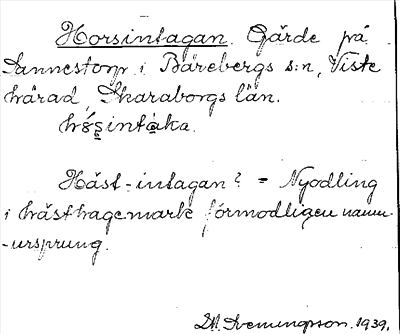 Horsintagan. Gärde på
Sannestorp i Bärebergs s:n, Viste
härad, Skaraborgs län.
Häst-intagan? = Nyodling
i hästhagemark förmodligen namn-
-ursprung.
Svenungson. 1939.